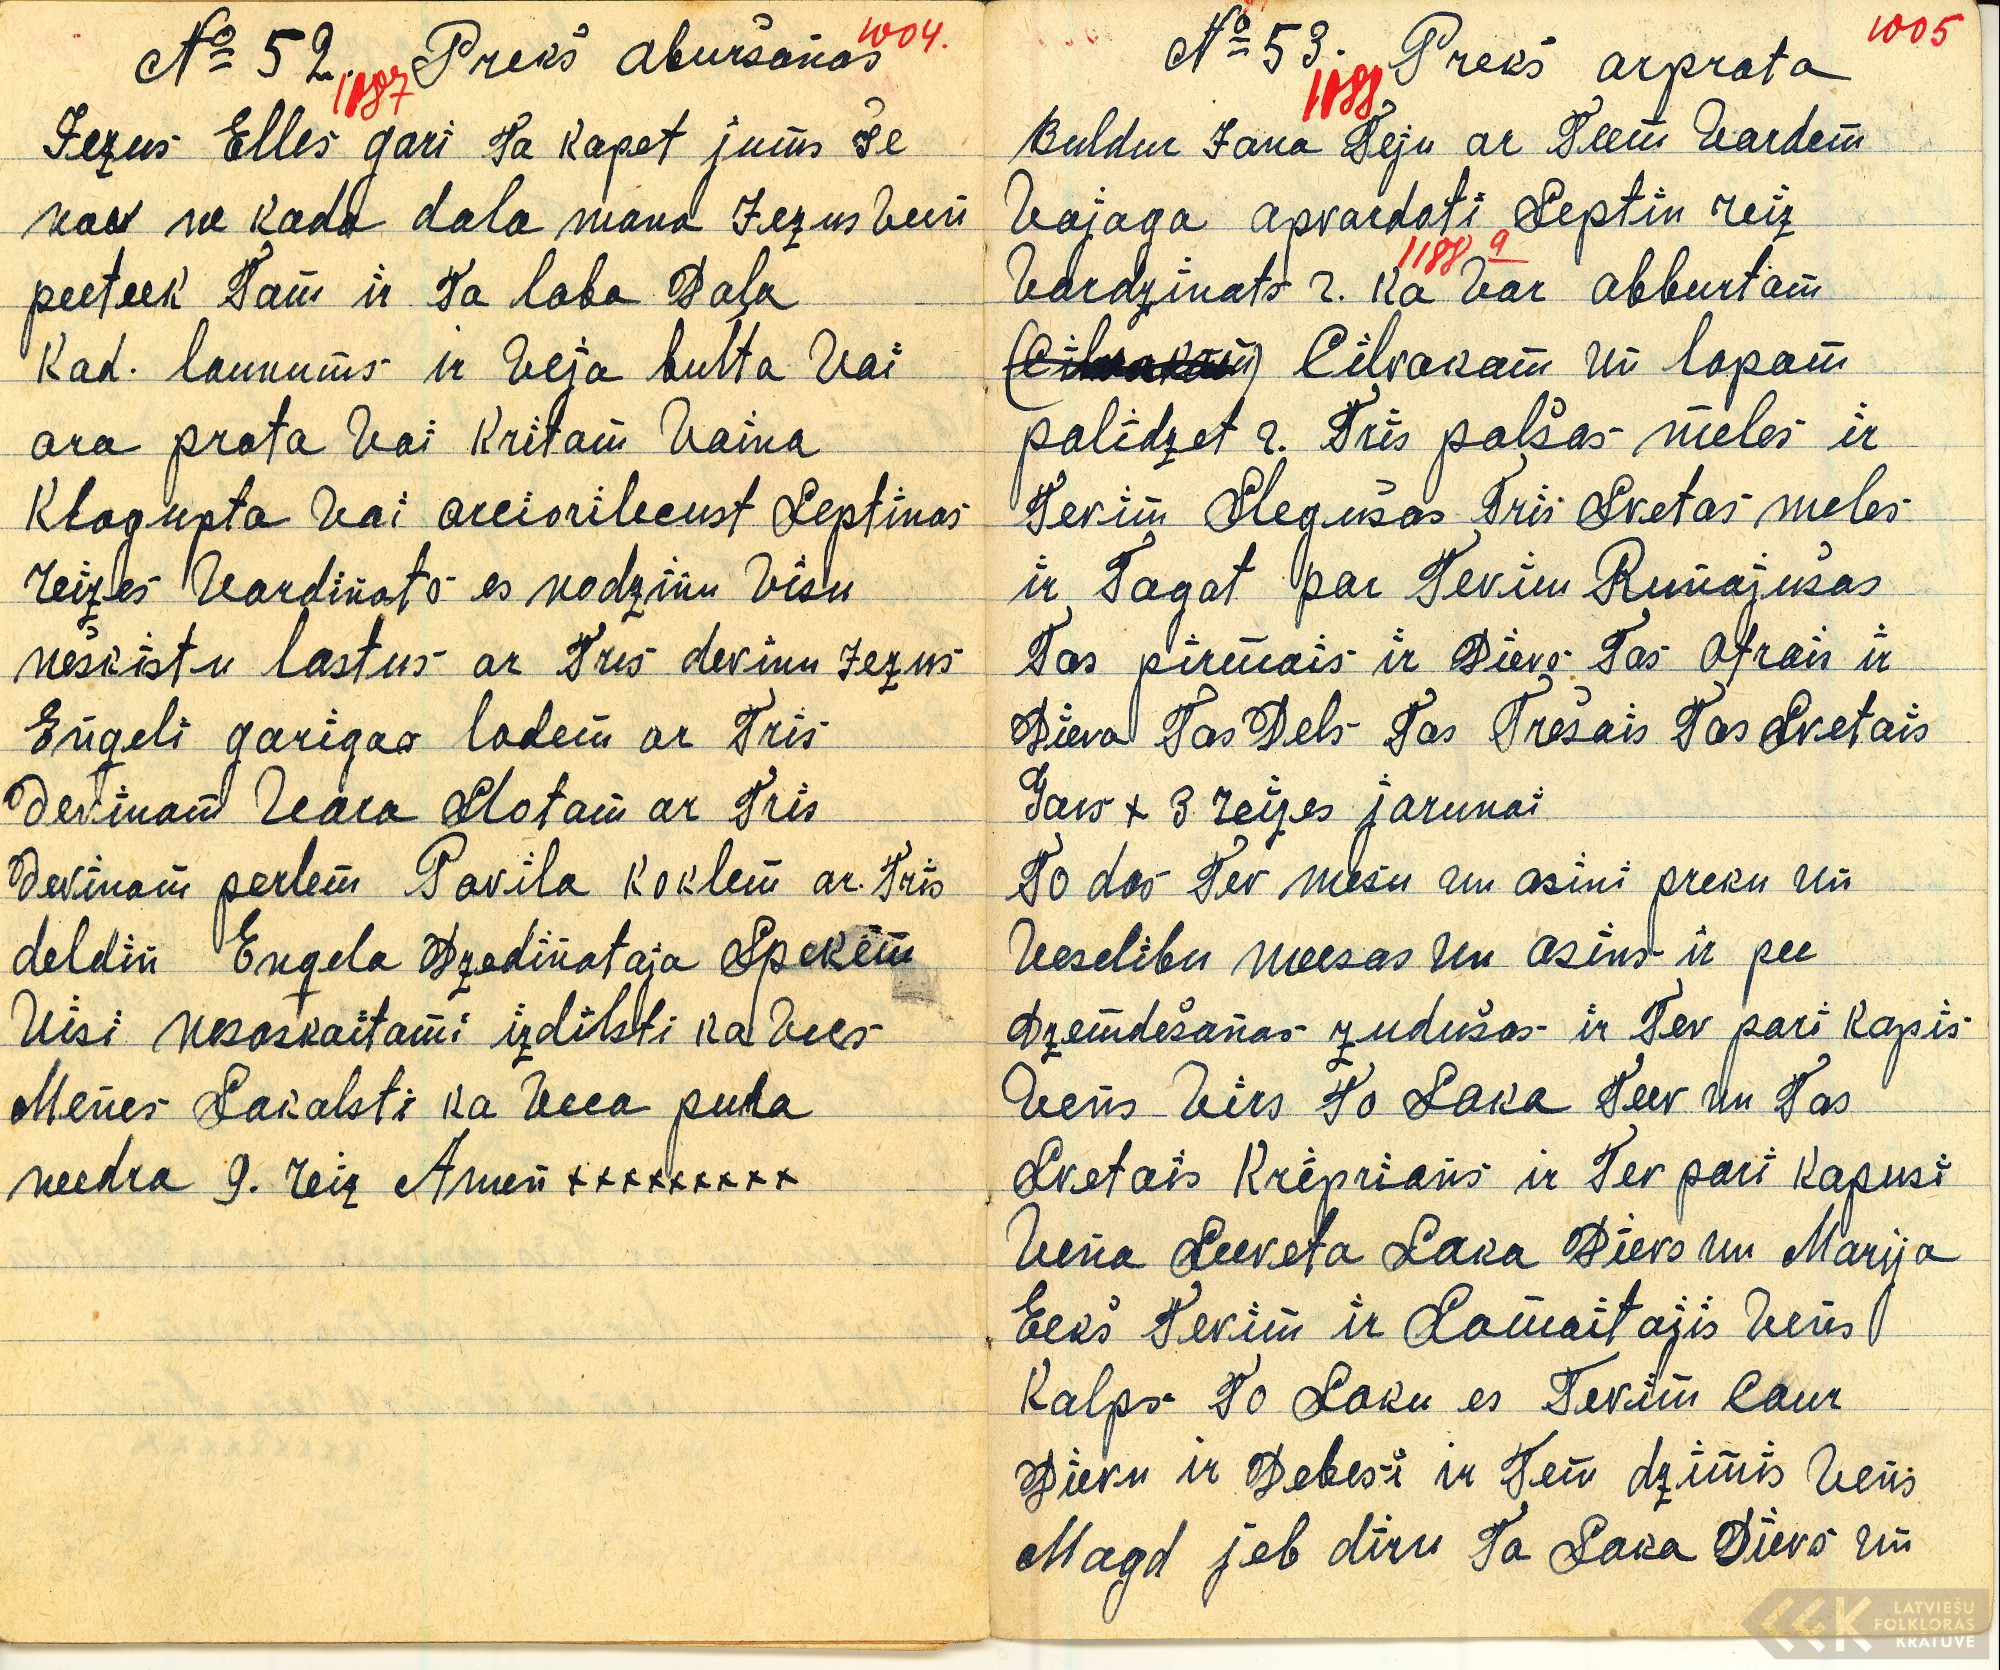 1004.
№ 52. Preks aburšanas
1187
Jezus Elles gari Ta kapet jums še
nav ne kada dala mana Jezus Veen
peeteek Tam ir Ta laba Dala
Kad. launums ir Veja bulta Vai
ara prata Vai Kritam Vaina
Septinas
reizes Vardinats es nodzinu Visu
neskistu lastus ar Tris devinu Jezus
Engeli garigas lodem ar Tris
Devinam Vara Slotam ar Tris
Devinam perlem Pavila koklem ar. Tris
deldin Engela Dzedinataja Spekem
Visi nosaskaitami izdilsti ka Vees
Menes Sakalsti ka Veca puda
needra 9. reiz Amen +++++++++
1005
№ 53. Preks arprata
1188
Buldur Jana Teju ar Teem Vardem
Vajaga apvardoti Septin reiz
1188 a
Vardzinats 2. Ka Var abburtam
(Cilvakam) Cilvakam un lopam
palidzet 2. Tris palšas meles ir
Tevim Slegušas Tris Svetas meles
ir Tagat par Tevim Runajušas
Tas pirmais ir Dievs Tas Otrais ir
Dieva Tas Dels Tas Trešais Tas Svetais
Gars + 3 reizes jarunai
To dos Tev mesu un asini preku un
Veselibu meesas un asins ir pee
Dzemdešanas zudušas ir Tev pari kapis
Vens Virs To Laka Teev un Tas
Svetais Kriprians ir Tev pari kapusi
Vena Seeveta Laka Dievs un Marija
Eekš Tevim ir Samaitajis Vens
Kalps To Laku es Tevim Caur
Dievu ir Debesi ir Tem dzimis Vens
Magd jeb diru Ta Laka Dievs un
LATVIEŠU
FOLKLORAS
KRĀTUVE